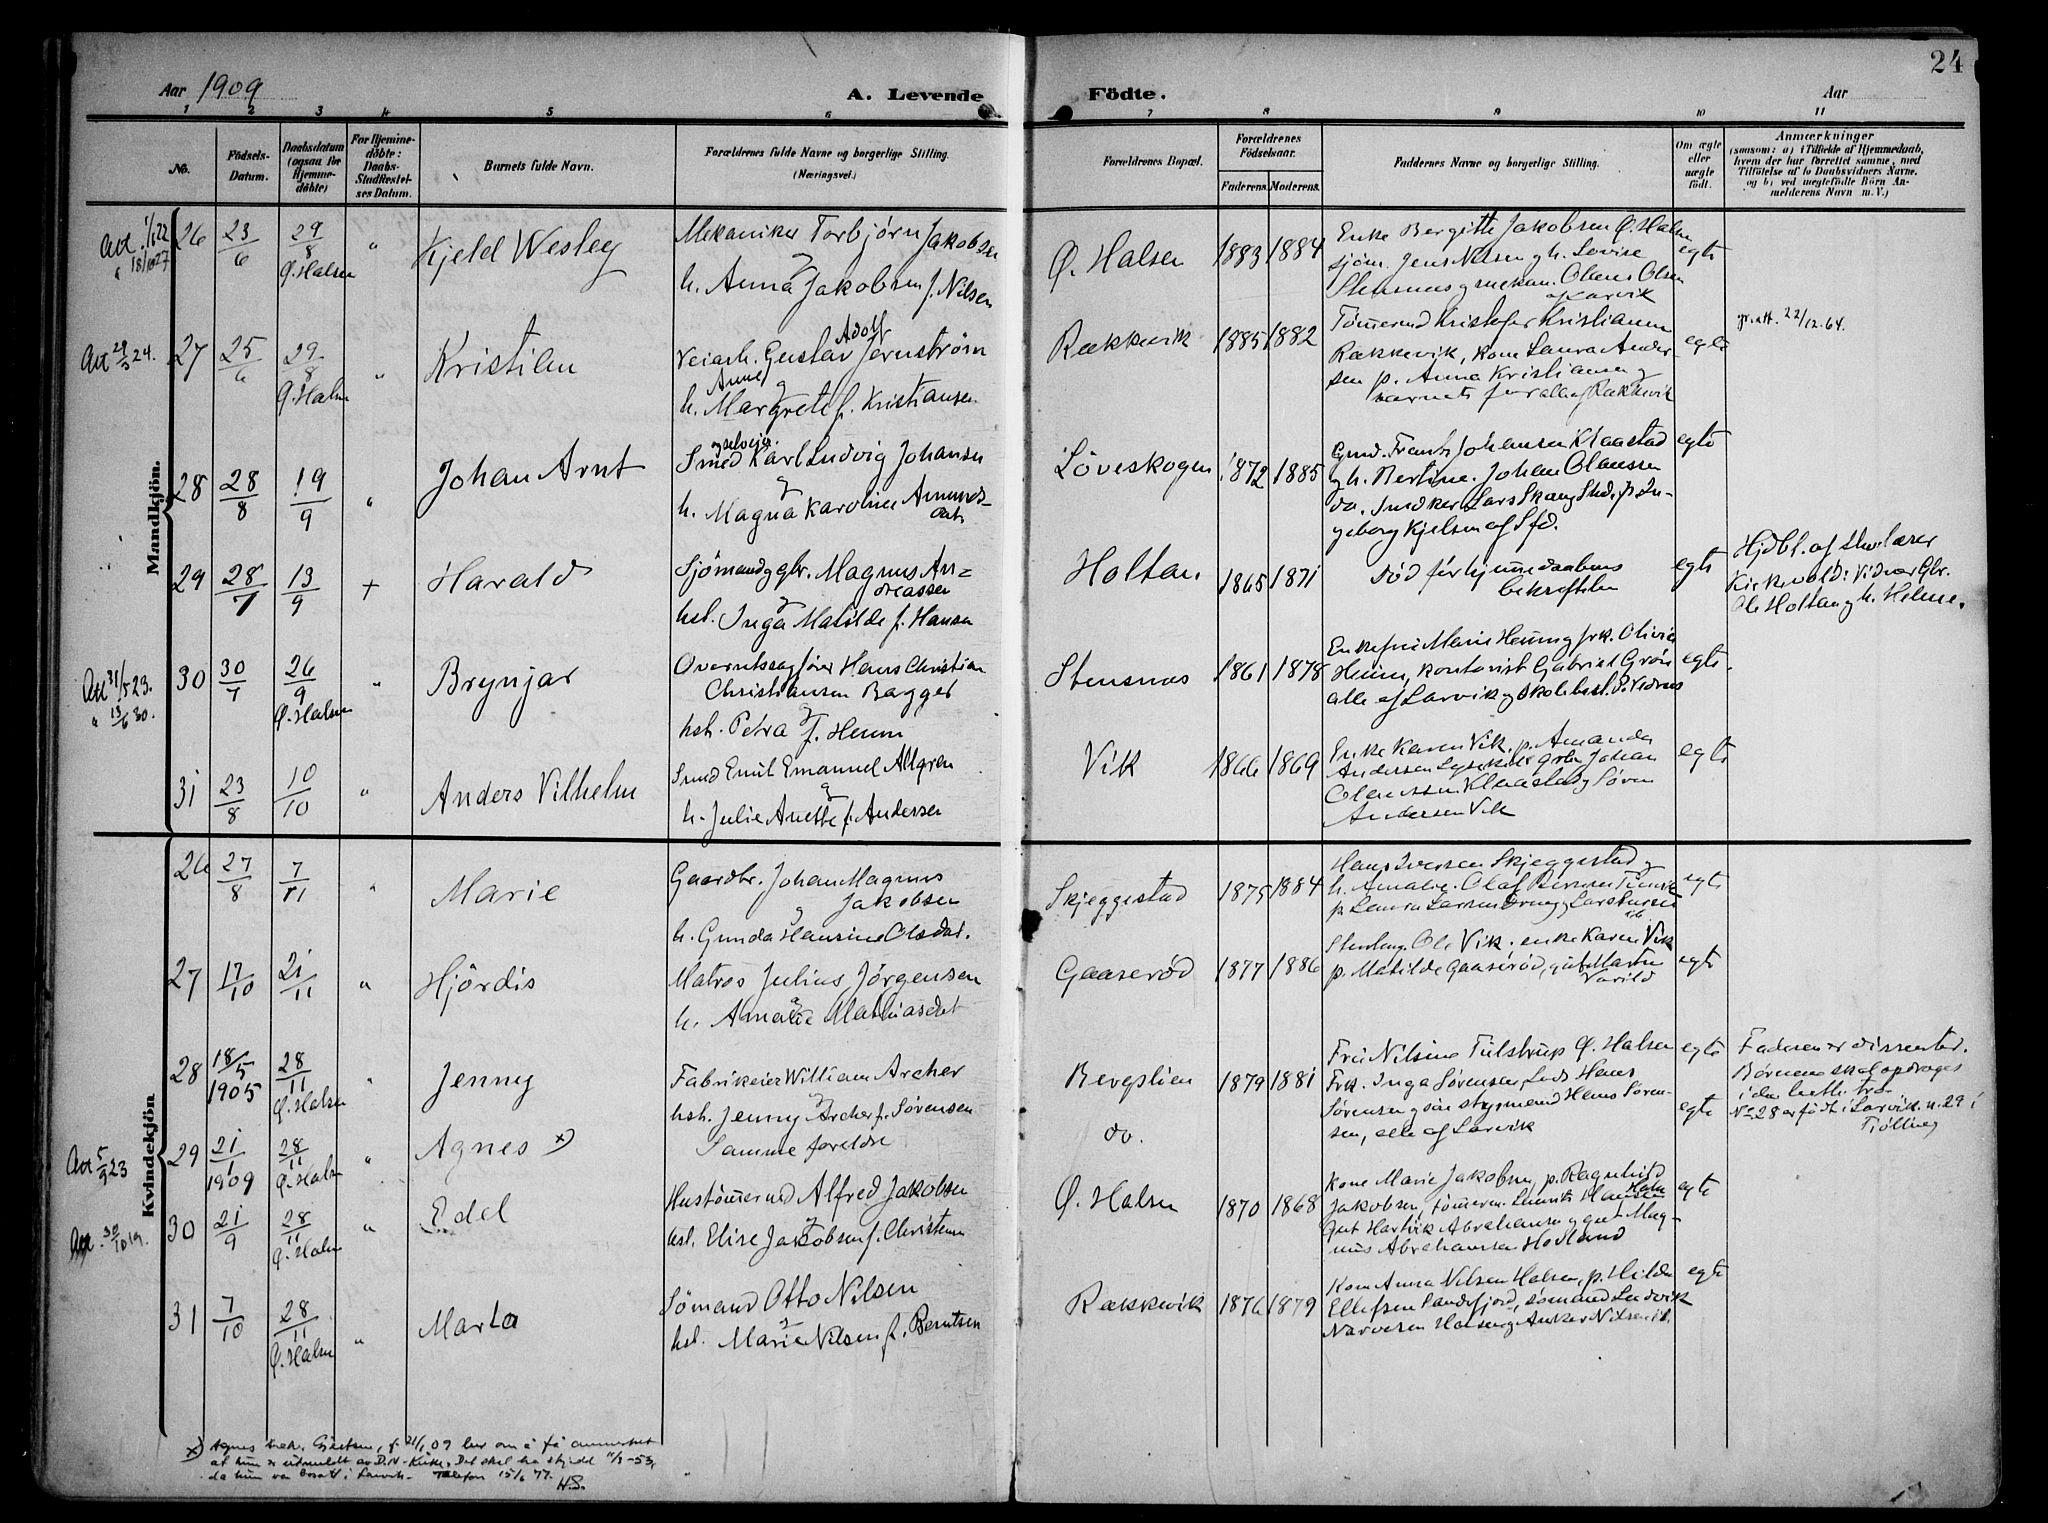 24
Aar 1909
A. Levende
Födte.
Aar
1 2 3 4 5 6 7 8 9 10 11
No.
Födsels-Datum.
Daabsdatum (ogsaa for Hjemmedöbte)
For Hjemmedöbte: Daabs-Stadfæstelses Datum.
Barnets fulde Navn.
Forældrenes fulde Navne og borgerlige Stilling.
(Næringsvei.)
Forældrenes Bopæl.
Forældrenes Födselsaar.
Faderens. Moderens.
Faddernes Navne og borgerlige Stilling.
Om ægte eller uægte født.
Anmærkninger
(saasom: a) i Tilfælde af Hjemmedaab,
hvem der har forrettet samme, med
Tilföielse af to Daabsvidners Navne.
og b) ved uægtefödte Börn An-
melderens Navn m. V.)
Mandkjön.
26 23/6 29/8 Ø. Halsen " Kjeld Wesley
Mekaniker Torbjørn Jakobsen
og
h. Anna Jakobsen f. Nilsen
Ø. Halsen 1883 1884
Enke Bergitte Jakobsen Ø. Halsen
sjøm. Jens Nilsen og h. Lovise
Stensnes og mekan. Olaus Olsen
af Larvik
egte
Att 29/3 24. 27 25/6 29/8 Ø. Halsen " Kristilen
Veiarb. Gustav Adolf Jernstrøm
og
h. Anne Margrete f. Kristiansen
Rækkevik 1885 1882
Tømmermd Kristofer Kristiansen
Rækkevik, kone Laura Ander-
sen p. Anna Kristiansen og
barnets far alle af Rækkevik
egte
22/12.64.
28 28/8 19/9 " Johan Arnt
Smed og selveier Karl Ludvig Johansen
og
h. Magna Karoline Amunds-
datr
Løveskogen 1872 1885
Gmd. Frants Johansen Klaastad
og h. Bertine. Johan Olaussen
do. Snedker Lars Skaug Shd, p. In-
geborg Kjelsen af Sfd.
egte
29 28/7 13/9 + Harald
Sjømand og gbr. Magnus An-
dreassen
og
hst. Inga Matilde f. Hansen
Holtan 1865 1871
død før hjemmedaabens
bekræftelse
egte
Hjdbt. af skolelærer
Kirkevold: Vidner Gbr.
Ole Holtan og h. Helene.
Att 31/5 23.
" 13/6 30.
30 30/7 26/9 Ø. Halsen " Brynjar
Overretssagfører Hans Christian
Christiansen Bagger
og
hst. Petra f. Heum
Stensnes 1861 1878
Enkefru Marie Heum og frk. Olivia
Heum, kontorist Gabriel Grøn
alle af Larvik og skolebest. P. Vidnes
egte
31 23/8 10/10 " Anders Vilhelm
Smed Emil Emanuel Allgren
og
h. Julie Anette f. Andersen
Vik 1866 1869
Enke Karen Vik, p. Amanda
Andersen Lysekil, Gbr. Johan
Olaussen Klaastad og Søren
Andersen Vik
egte
Kvindekjön
26 27/8 7/11 " Marie
Gaardbr. Johan Magnus
Jakobsen
og
h. Gunda Hansine Olsdat.
Skjeggestad 1875 1884
Hans Iversen Skjeggestad og
h. Amalie. Olaf Berntsen
p. Laura Larsen og Lars Larsen
ib.
egte
27 17/10 21/11 " Hjördis
Matros Julius Jörgensen
og
h. Amalie Mathiasdat
Gaaserød 1877 1886
Ole Vik. enke Karen Vik
p. Matilde Gaaserød, gut Martin
Varild
egte
28 18/5 1905 28/11 Ø. Halsen " Jenny
Fabrikeier William Archer
og
hst. Jenny Archer f. Sørensen
Bergslien 1879 1881
Fru Nilsine Tulstrup Ø. Halsen
Frk. Inga Sørensen, Hans
Sørensen og søn styrmand Hans Søren-
sen, alle af Larvik
egte
Faderen er dissenter.
Børnene skal opdrages
i den luth. tro
No 28 er født i Larvik. n. 29 i
Tjølling
Att 5/9 23 29 21/1 1909 28/11 Ø. Halsen " Agnes x)
Samme forældre
do.
egte
Att. 30/10 19. 30 21/9 28/11 Ø. Halsen " Edel
Hustømmermd Alfred Jakobsen
og
hst. Elise Jakobsen f. Christensen
Ø. Halsen 1870 1868
Kone Marie Jakobsen, p. Ragnhild
Jakobsen, tømmerm. Laurits Hansen Halsen
Gut Hartvik Abrahamsen og gut Mag-
nus Abrahamsen Hovland
egte
31 7/10 28/11 Ø. Halsen " Marta
Sömand Otto Nilsen
og
hst. Marie Nilsen f. Berntsen
Rækkevik 1876 1879
Kone Anna Nilsen Halsen, p. Hilda
Ellefsen Sandefjord, sømand Ludvik
Narvesen Halsen og Anker Nilsen ib.
egte
x) Agnes Gjertsen, f. 21/1 09 ber om å få anmerket
at hun er utmeldt av D.N. Kirke. Det skal ha skjedd 11/3-53,
da hun var bosatt i Larvik. Telefon 15/6 77.
H.S.